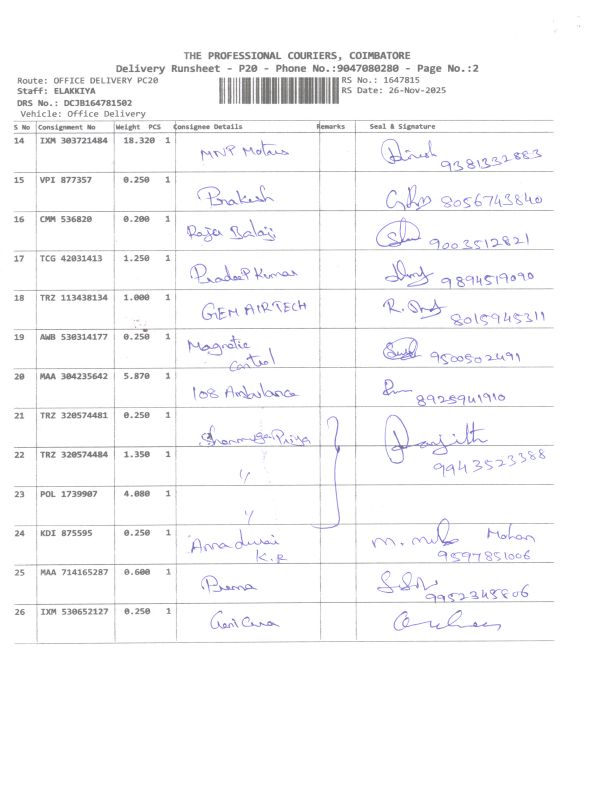 THE PROFESSIONAL COURIERS, COIMBATORE
Delivery Runsheet - P20 - Phone No.:9047080280 - Page No.:2
Route: OFFICE DELIVERY PC20
RS No.: 1647815
Staff: ELAKKIYA
RS Date: 26-Nov-2025
DRS No.: DCJB164781502
Vehicle: Office Delivery
S No Consignment No Weight PCS Consignee Details Remarks Seal & Signature
14 IXM 303721484 18.320 1 MNP Motors Dinesh
9381332883
15 VPI 877357 0.250 1 Prakash 8056743840
16 CMM 536820 0.200 1 Raja Balaji 9003512821
17 TCG 42031413 1.250 1 Pradeep Kumar 9894519090
18 TRZ 113438134 1.000 1 GEM AIRTECH R.
8015945311
19 AWB 530314177 0.250 1 Magnetic
Control 9500502491
20 MAA 304235642 5.870 1 108 Ambulance
8925941910
21 TRZ 320574481 0.250 1 Shanmuga Priya Ranjith
22 TRZ 320574484 1.350 1 〃 9943523388
23 POL 1739907 4.080 1 〃
24 KDI 875595 0.250 1 Annadurai M. Mohan
K.R 9597851006
25 MAA 714165287 0.600 1 Prema
9952348806
26 IXM 530652127 0.250 1